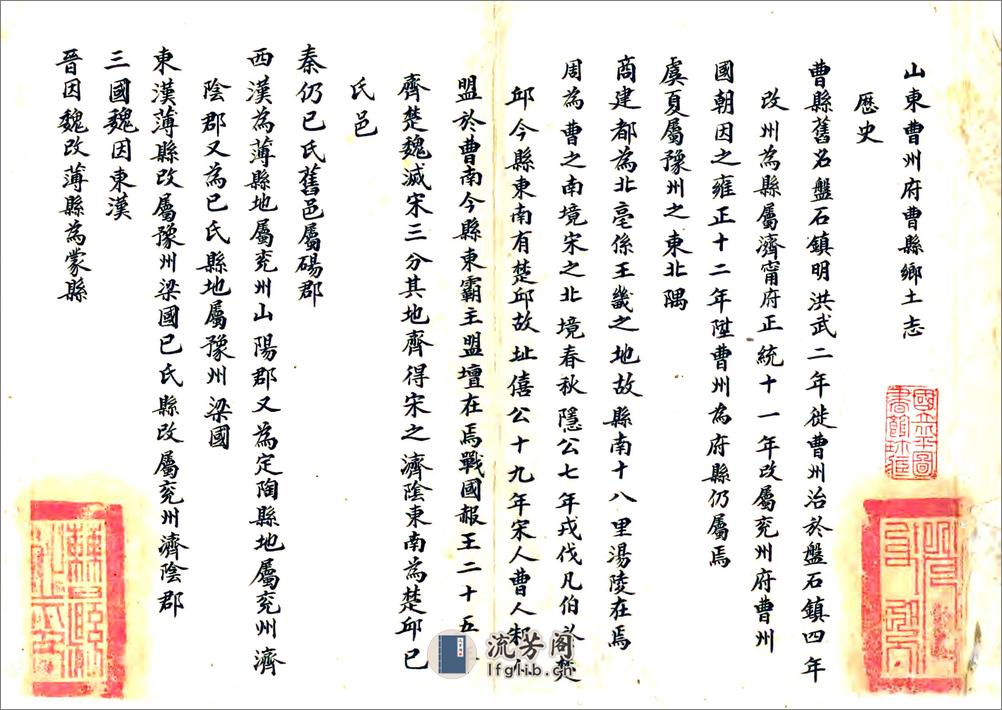 山東曹州府曹縣鄉土志
歷史
曹縣舊名盤石鎮明洪武二年徙曹州治於盤石鎮四年
改州為縣屬濟甯府正統十一年改屬兗州府曹州
國朝因之雍正十二年陞曹州為府縣仍屬焉
虞夏屬豫州之東北隅
商建都為北亳係王畿之地故縣南十八里湯陵在焉
周為曹之南境宋之北境春秋隱公七年戎伐凡伯於楚
邱今縣東南有楚邱故址僖公十九年宋人曹人邾人
盟於曹南今縣東霸主盟壇在焉戰國赧王二十五
齊楚魏滅宋三分其地齊得宋之濟陰東南為楚邱已
氏邑
秦仍已氏舊邑屬碭郡
西漢為薄縣地屬兗州山陽郡又為定陶縣地屬兗州濟
陰郡又為已氏縣地屬豫州梁國
東漢薄縣改屬豫州梁國已氏縣改屬兗州濟陰郡
三國魏因東漢
晉因魏改薄縣為蒙縣
國立北平圖書館珍藏
流芳阁
lfglib.cn